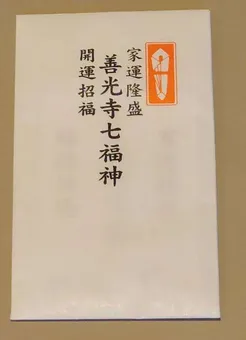 家運隆盛
善光寺七福神
開運招福